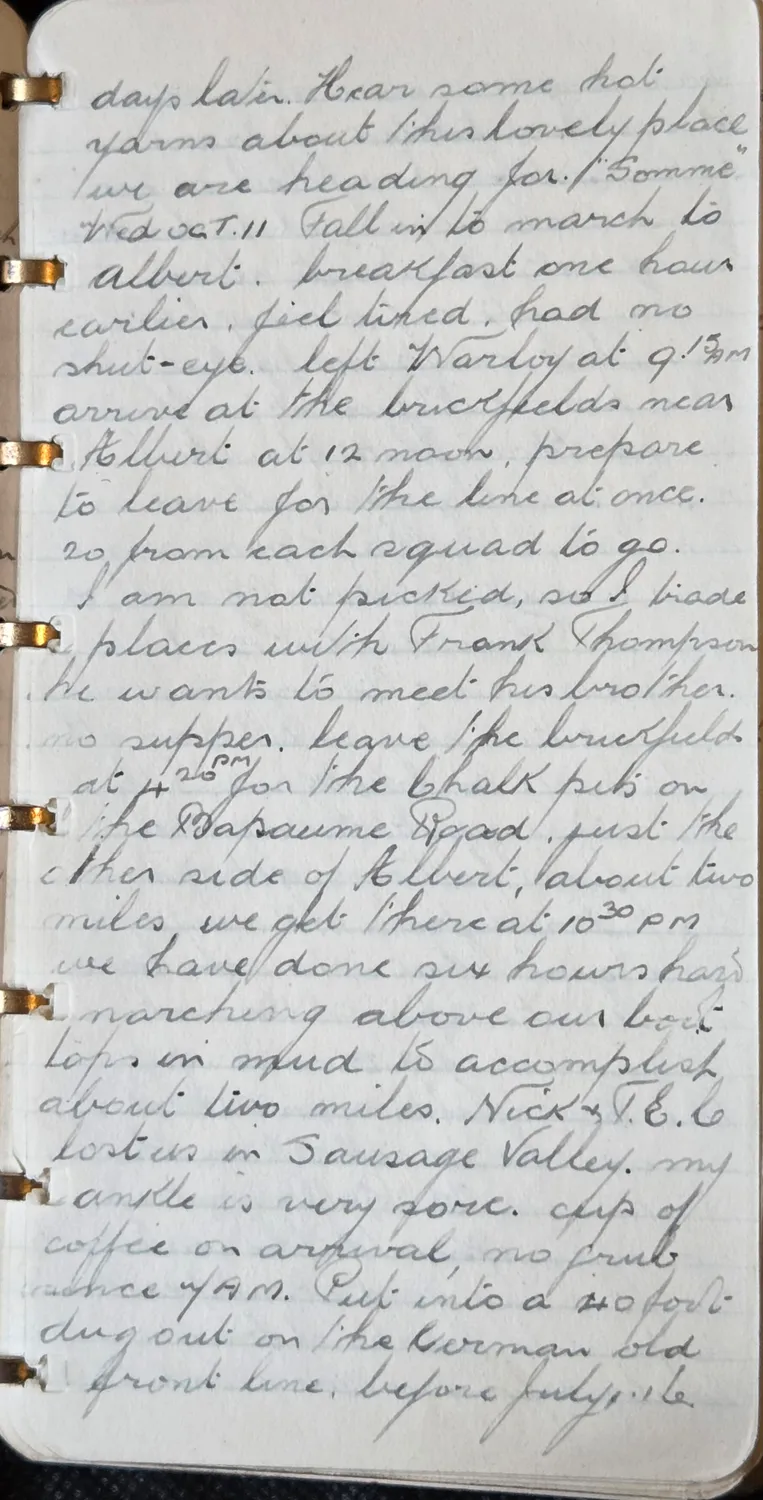 days later. Hear some hot
yarns about this lovely place
we are heading for. "Somme"
Wed OCT. 11 Fall in to march to
Albert. breakfast one hour
earlier. feel tired. had no
shut-eye. left Warloy at 9.15 AM
arrive at the brickfields near
Albert at 12 noon. prepare
to leave for the line at once.
20 from each squad to go.
I am not picked, so I trade
places with Frank Thompson
he wants to meet his brother.
no supper. leave the brickfields
at 4 20 PM for the Chalk pits on
the Bapaume Road. just the
other side of Albert, about two
miles, we get there at 10 30 PM
we have done six hours hard
marching above our boot
tops in mud to accomplish
about two miles. Nick & T.E.C
lost us in Sausage Valley. my
ankle is very sore. cup of
coffee on arrival, no grub
since 7 AM. Put into a 40 foot
dugout on the German old
front line, before July, 1. 16